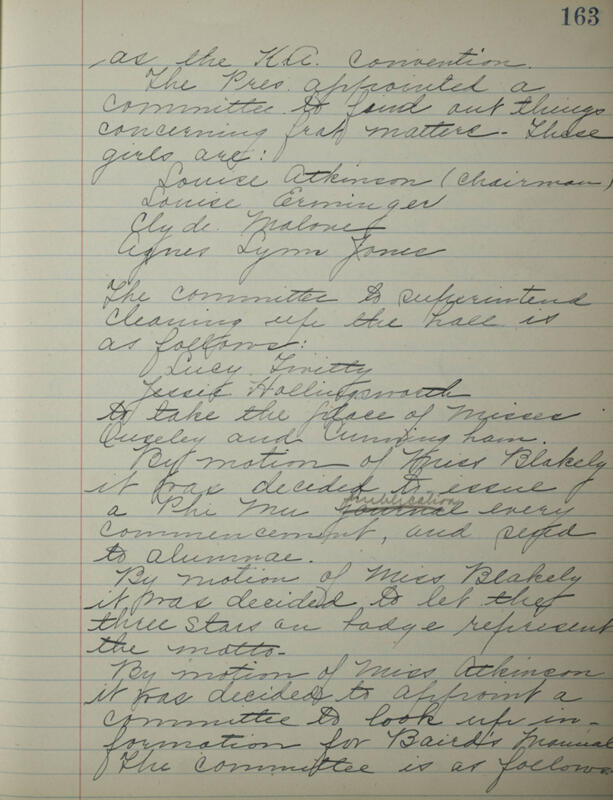 163
as the K.A. convention.
The Pres. appointed a
committee to find out things
concerning frat matters - These
girls are:
Louise Atkinson (chairman)
Louise Erminger
Clyde Malone
Agnes Lynn Jones
The committee to superintend
cleaning up the hall is
as follows:
Lucy Twitty
Jessie Hollingsworth
to take the place of Misses
Ouseley and Cunningham.
By motion of Miss Blakely
it was decided to issue
publication
a Phi Mu journal every
commencement, and send
to alumnae.
By motion of Miss Blakely
it was decided to let the
three stars on badge represent
the motto-
By motion of Miss Atkinson
it was decided to appoint a
committee to look up in-
formation for Baird's Manual
The committee is as follows